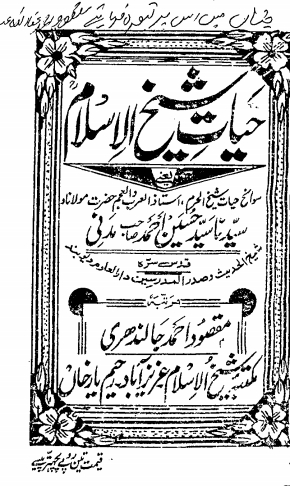 حیات شیخ الاسلام
یعنی
سوانح حیات شیخ الحرم، استاذ العرب والعجم حضرت مولانا و
سیدنا سید حسین احمد صاحب مدنی
قدس سرہ
شیخ الحدیث و صدر المدرسین دارالعلوم دیوبند
مرتبہ
مقصود احمد جالندھری
مکتبہ شیخ الاسلام عزیز آباد، رحیم یار خاں
قیمت تین روپے پچھتر پیسے